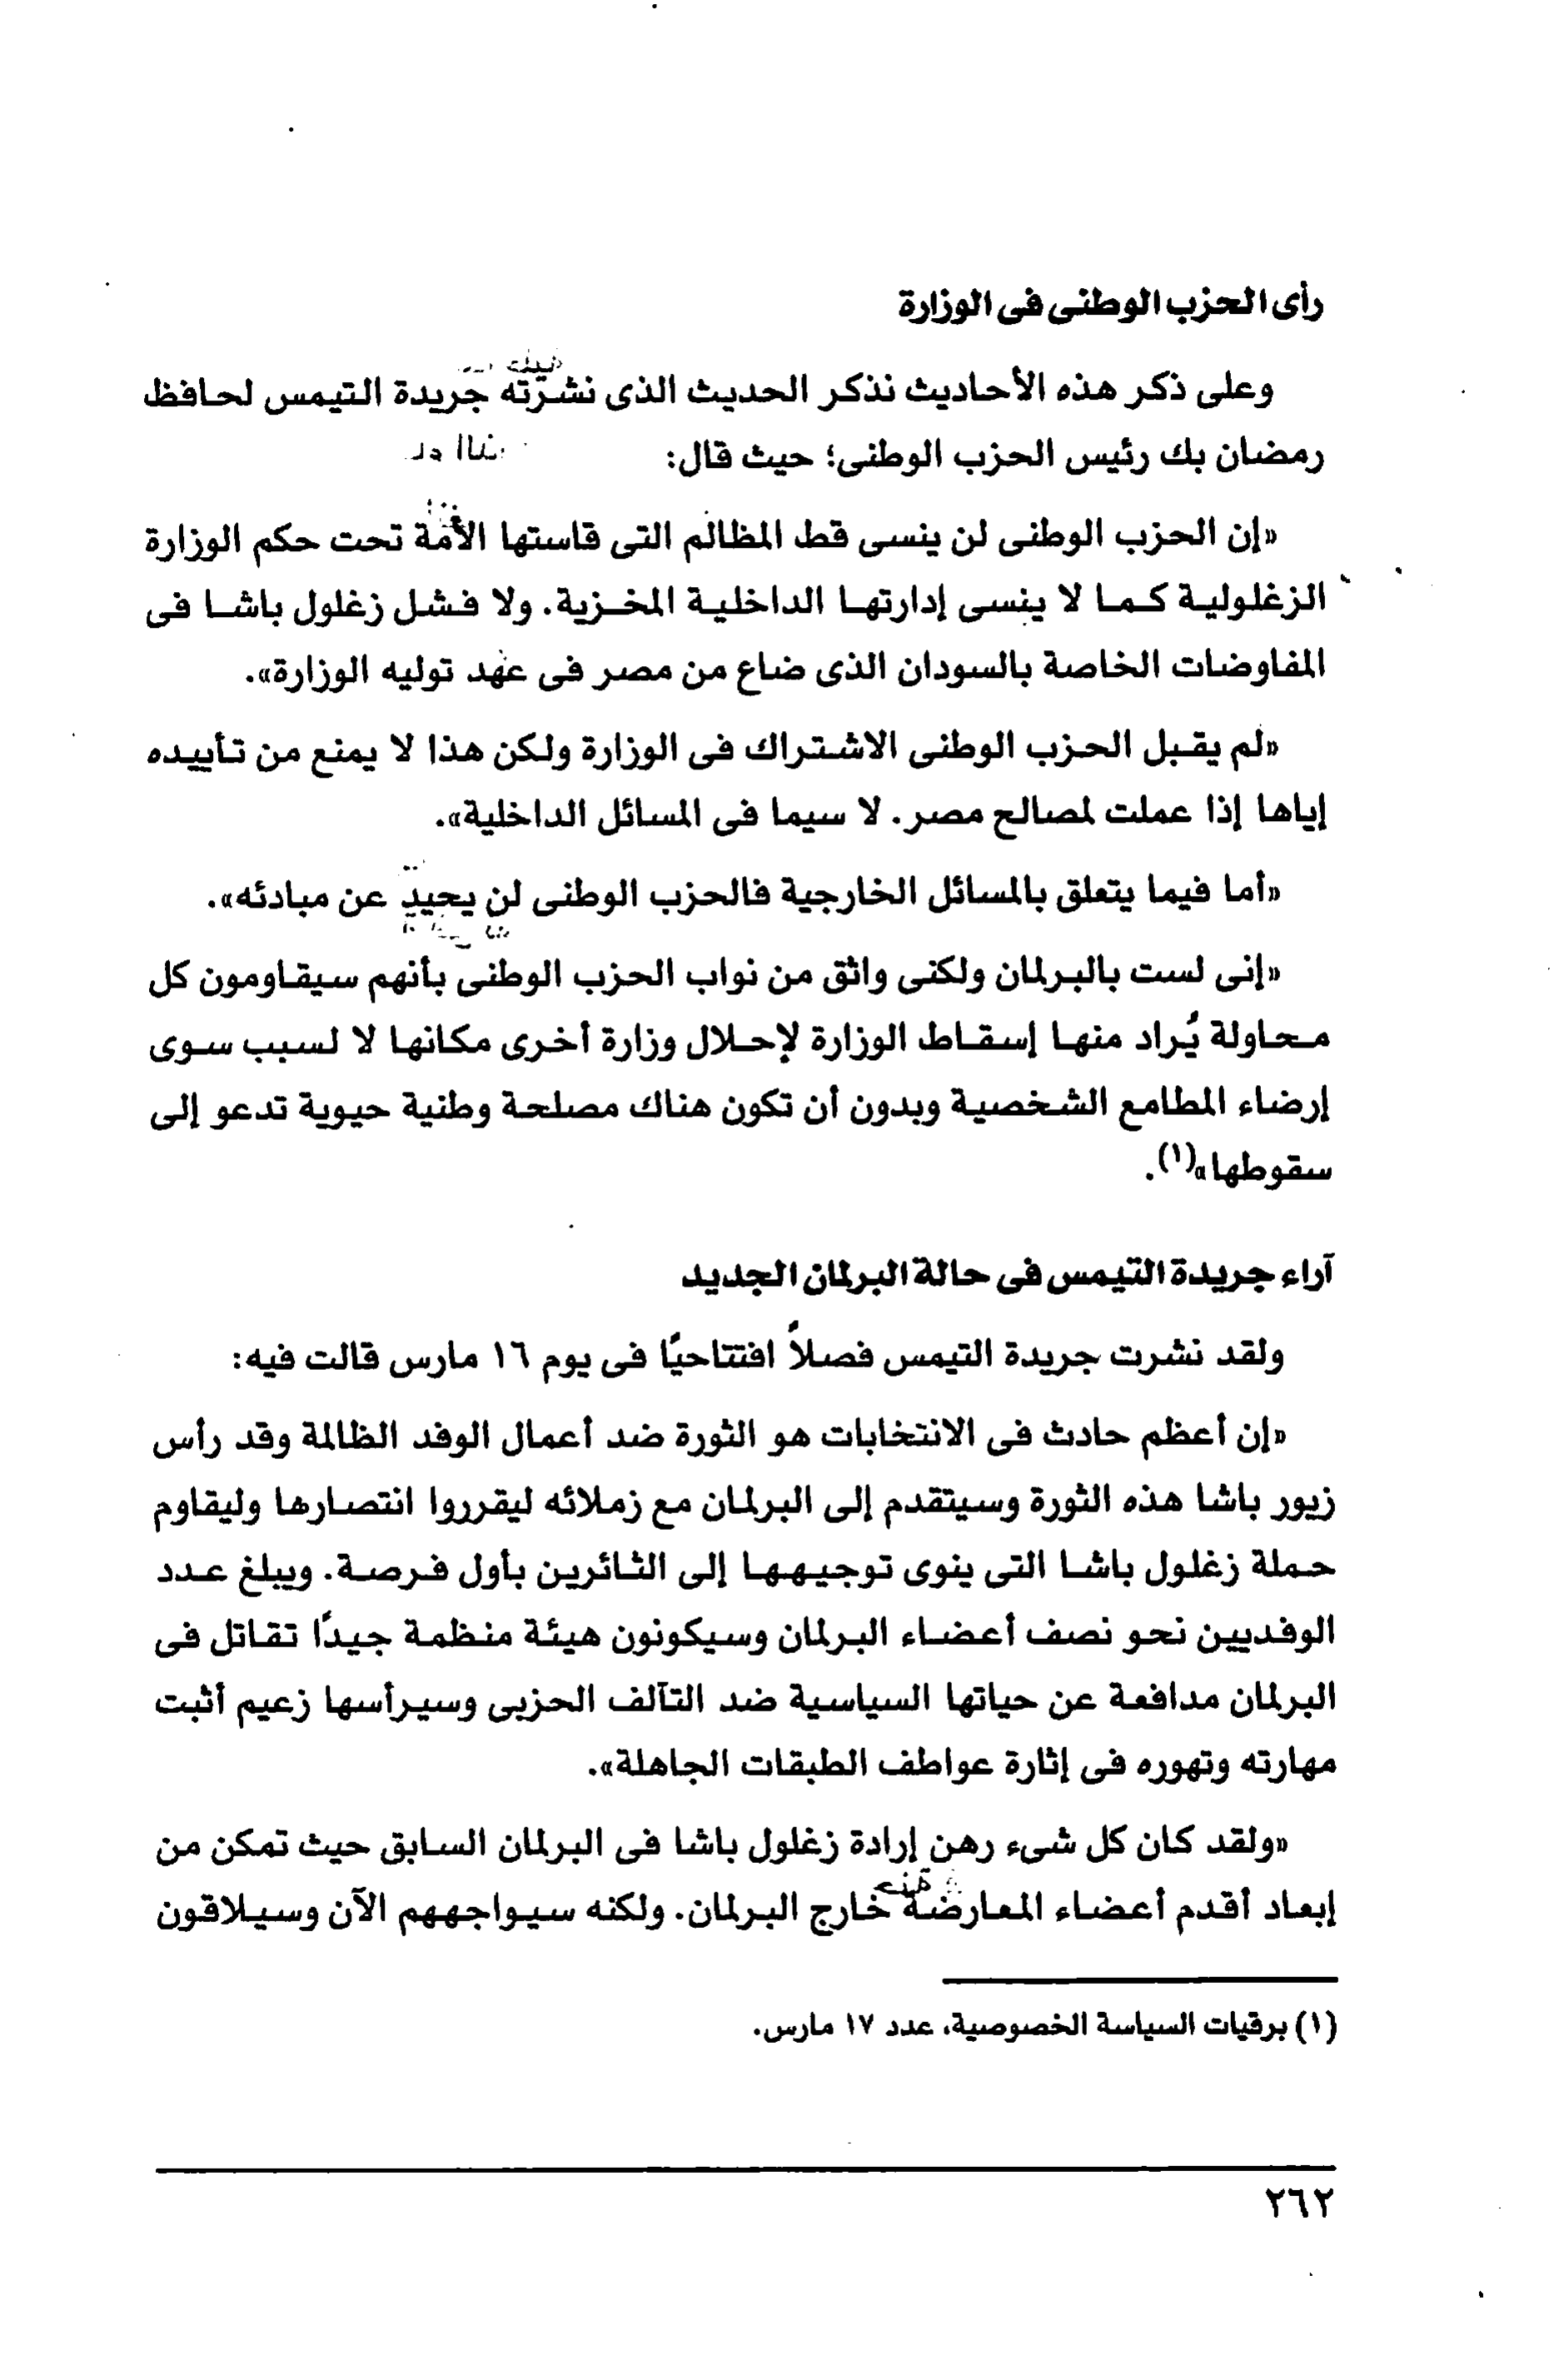 رأى الحزب الوطنى فى الوزارة
وعلى ذكر هذه الأحاديث نذكر الحديث الذى نشرته جريدة التيمس لحافظ
رمضان بك رئيس الحزب الوطنى؛ حيث قال:
«إن الحزب الوطنى لن ينسى قط المظالم التى قاستها الأمة تحت حكم الوزارة
الزغلولية كما لا ينسى إدارتها الداخلية المخزية. ولا فشل زغلول باشا فى
المفاوضات الخاصة بالسودان الذى ضاع من مصر فى عهد توليه الوزارة».
«لم يقبل الحزب الوطنى الاشتراك فى الوزارة ولكن هذا لا يمنع من تأييده
إياها إذا عملت لمصالح مصر. لا سيما فى المسائل الداخلية».
«أما فيما يتعلق بالمسائل الخارجية فالحزب الوطنى لن يحيد عن مبادئه».
«إنى لست بالبرلمان ولكنى واثق من نواب الحزب الوطنى بأنهم سيقاومون كل
محاولة يُراد منها إسقاط الوزارة لإحلال وزارة أخرى مكانها لا لسبب سوى
إرضاء المطامع الشخصية وبدون أن تكون هناك مصلحة وطنية حيوية تدعو إلى
سقوطها»(١).
آراء جريدة التيمس فى حالة البرلمان الجديد
ولقد نشرت جريدة التيمس فصلاً افتتاحيًا فى يوم ١٦ مارس قالت فيه:
«إن أعظم حادث فى الانتخابات هو الثورة ضد أعمال الوفد الظالمة وقد رأس
زيور باشا هذه الثورة وسيتقدم إلى البرلمان مع زملائه ليقرروا انتصارها وليقاوم
حملة زغلول باشا التى ينوى توجيهها إلى الثائرين بأول فرصة. ويبلغ عدد
الوفديين نحو نصف أعضاء البرلمان وسيكونون هيئة منظمة جيدًا تقاتل فى
البرلمان مدافعة عن حياتها السياسية ضد التآلف الحزبى وسيرأسها زعيم أثبت
مهارته وتهوره فى إثارة عواطف الطبقات الجاهلة».
«ولقد كان كل شىء رهن إرادة زغلول باشا فى البرلمان السابق حيث تمكن من
إبعاد أقدم أعضاء المعارضة خارج البرلمان. ولكنه سيواجههم الآن وسيلاقون
(١) برقيات السياسة الخصوصية، عدد ١٧ مارس.
٢٦٢